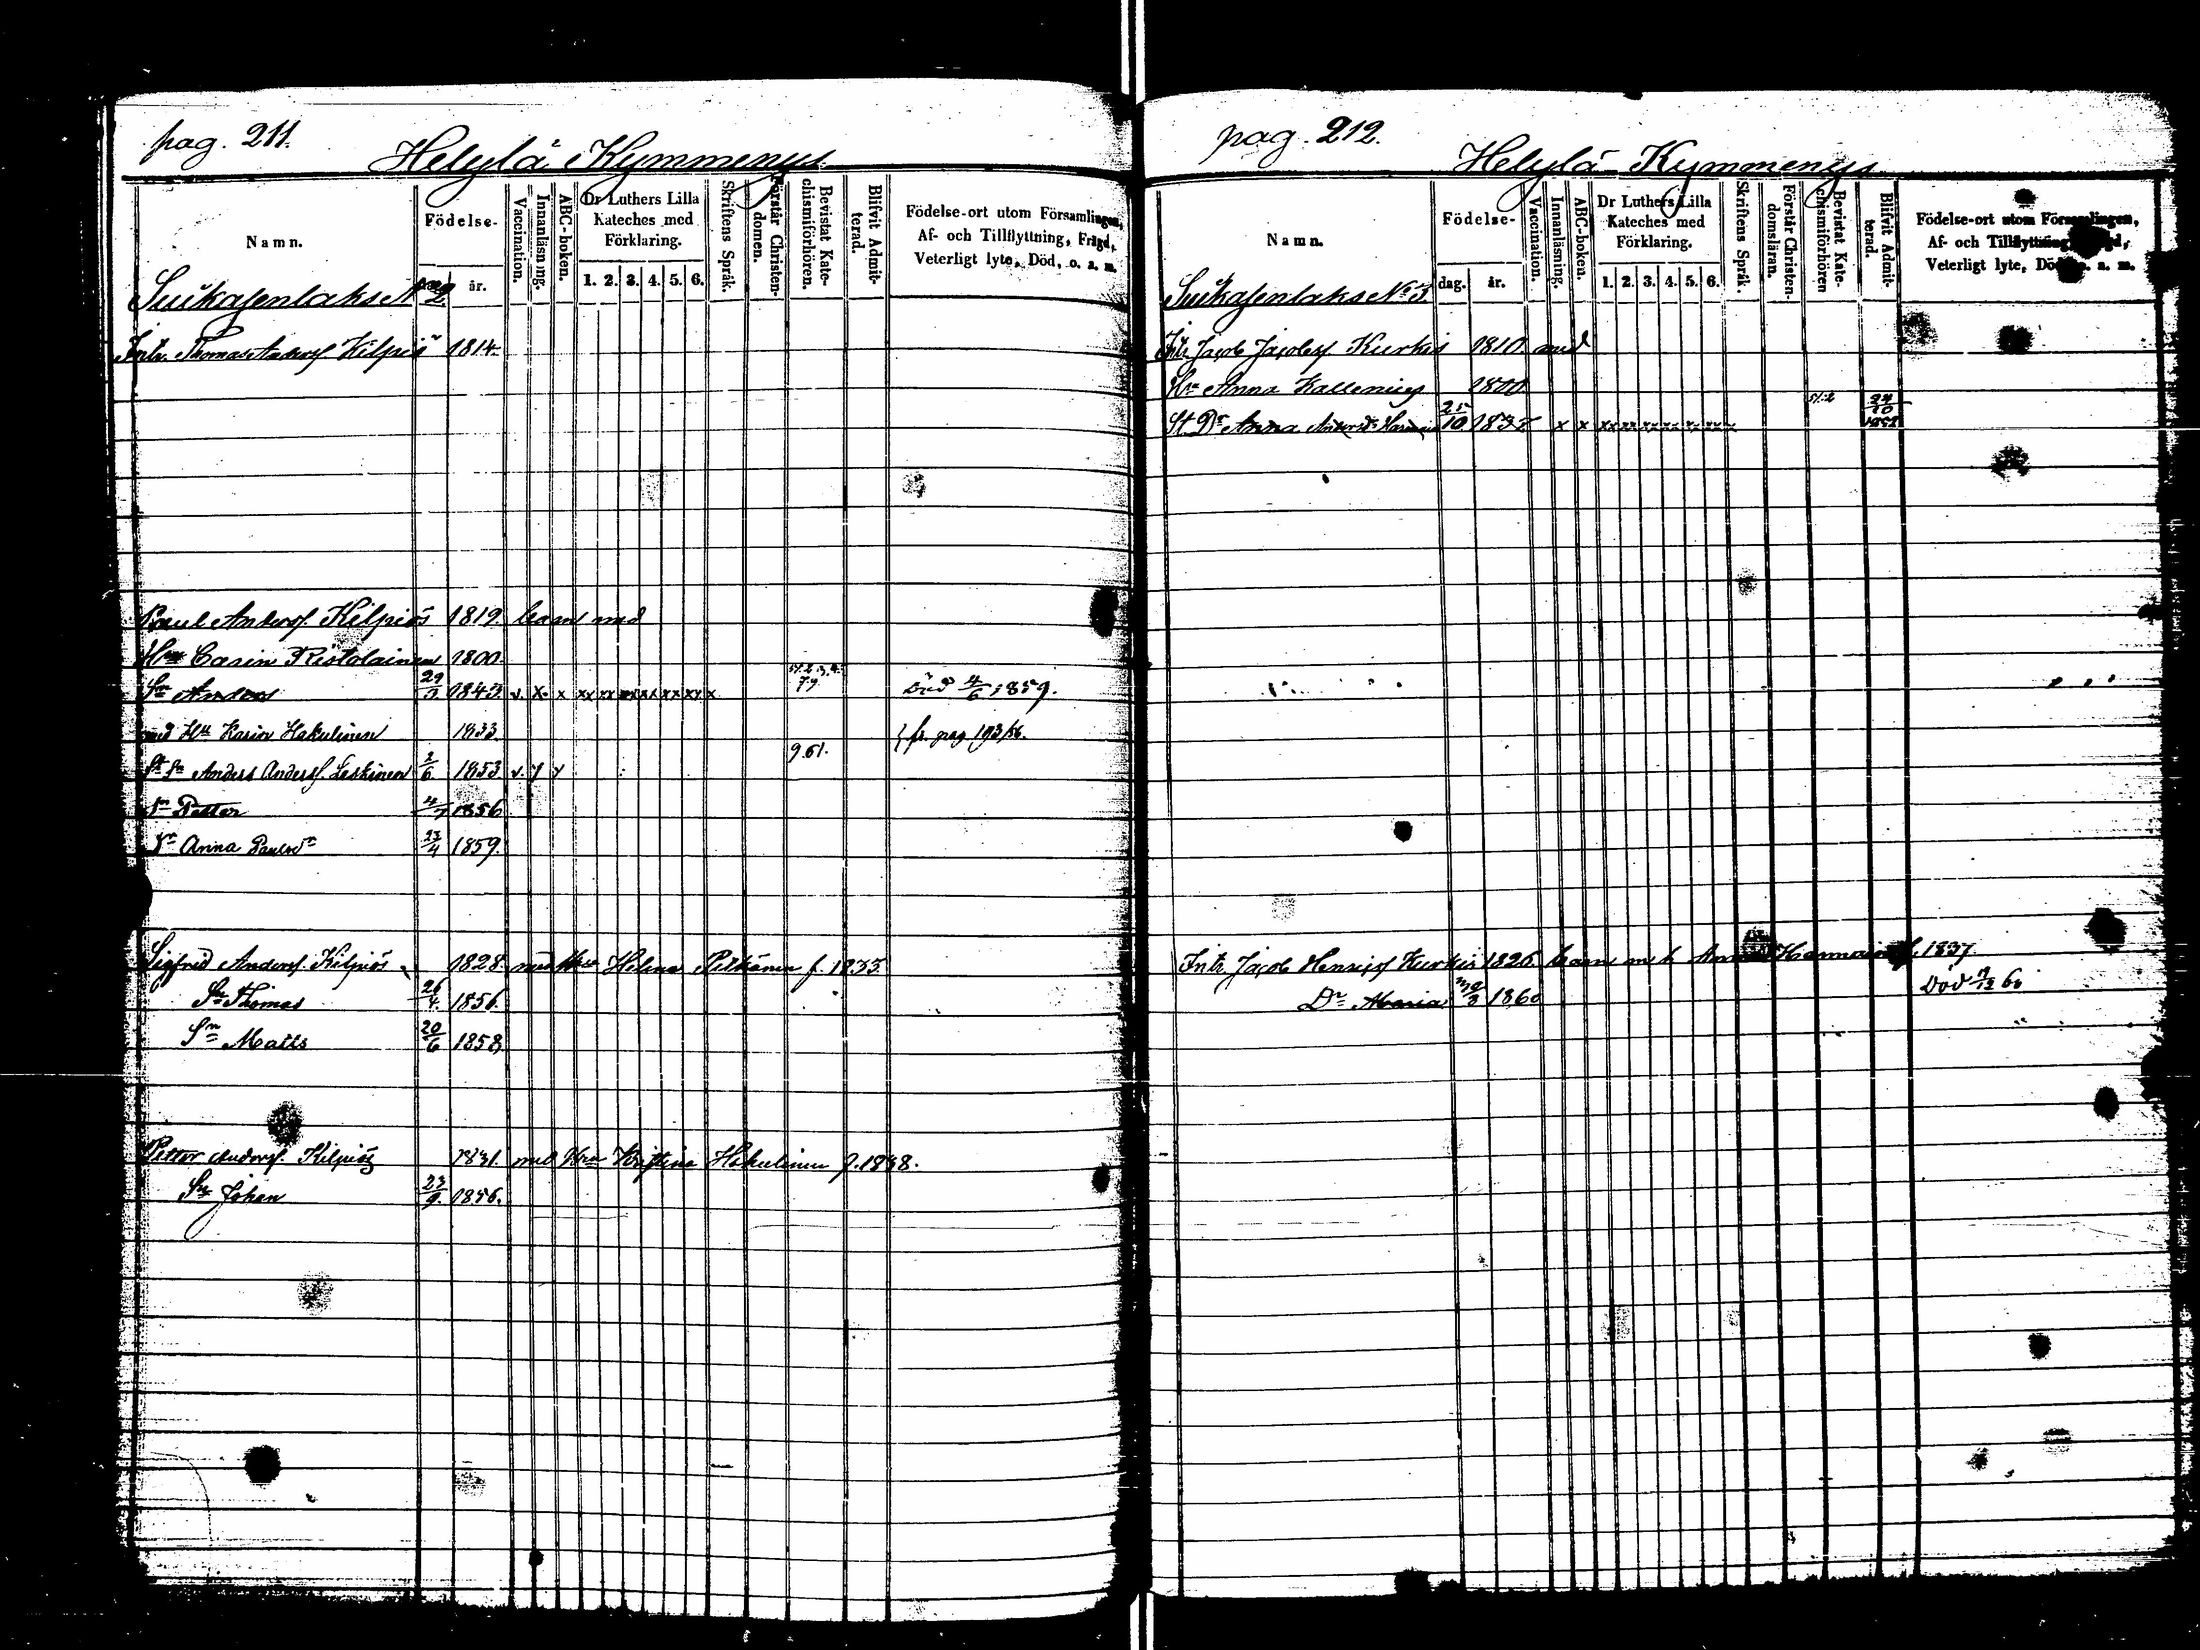 pag. 211.
Helylä Kymmenys
Namn.
Födelse-
dag. år.
Vaccination.
Innanläsning.
ABC-boken.
Dr Luthers Lilla Kateches med Förklaring.
1. 2. 3. 4. 5. 6.
Skriftens Språk.
Förstår Christendomen.
Bevistat Katechismiförhören.
Blifvit Admitterad.
Födelse-ort utom Församlingen,
Af- och Tillflyttning, Frägd,
Veterligt lyte, Död, o. s. m.
Suikasenlaks N 2
Inh. Thomas Andersſ Kilpiö 1814.
Paul Andersſ Kilpiös 1819. med
Hu Carin Ristolainen 1800.
Sn Anders 29 1843 v. x x xx xx xx xx xx xx x Död 4/6 1859.
med Hu Karin Hakulinen 1833 fr. pag 193/56.
9.61.
St Sn Anders Andersſ. Leskinen 2/6 1853 v. y y
Sn Petter 4/7 1856
Dr Anna Paulsdr 23/4 1859.
Sigfred Andersſ. Kilpiös 1828. med Hu Helena Pitkänen f. 1833.
Sn Thomas 26/4. 1856.
Sn Matts 20/6 1858
Petter Andersſ. Kilpiös 1831. med Hu Kristina Hakulinen f. 1838.
Sn Johan 23/9. 1856.
pag. 212.
Helylä Kymmenys
Namn.
Födelse-
dag. år.
Vaccination.
Innanläsning.
ABC-boken.
Dr Luthers Lilla Kateches med Förklaring.
1. 2. 3. 4. 5. 6.
Skriftens Språk.
Förstår Christendomsläran.
Bevistat Katechismiförhören
Blifvit Admitterad.
Födelse-ort utom Församlingen,
Af- och Tillflyttning,
Veterligt lyte, Död, o. a. m.
Suikasenlaks No 3
Inh Jacob Jacobsſ. Kurkis 1810. med
Hu Anna Kallenius 1800
St Dr Anna Andersdr 25/10 1837 x x xx xx xx xx xx xx
Inh. Jacob Henricsſ Kurkis 1826. med 1837
Dr Maria 1860 Död